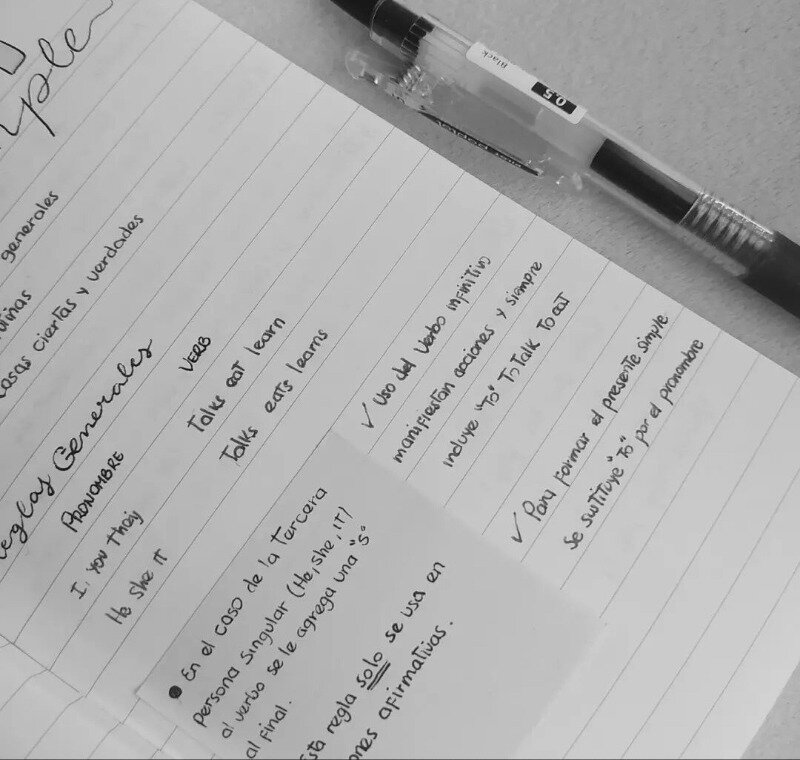 generales
casas ciertas y verdades
Generales
PRONOMBRE VERB
I, you they Talks eat learn
He she IT Talks eats learns
• En el caso de la Tercera
persona singular (He, she, IT)
al verbo se le agrega una "S"
al Final.
regla solo se usa en
afirmativas.
✓ Uso del Verbo infinitivo
manifiestan acciones y siempre
incluye "To" To Talk To eat
✓ Para Formar el presente simple
se sustituye "To" por el pronombre
Black
0.5